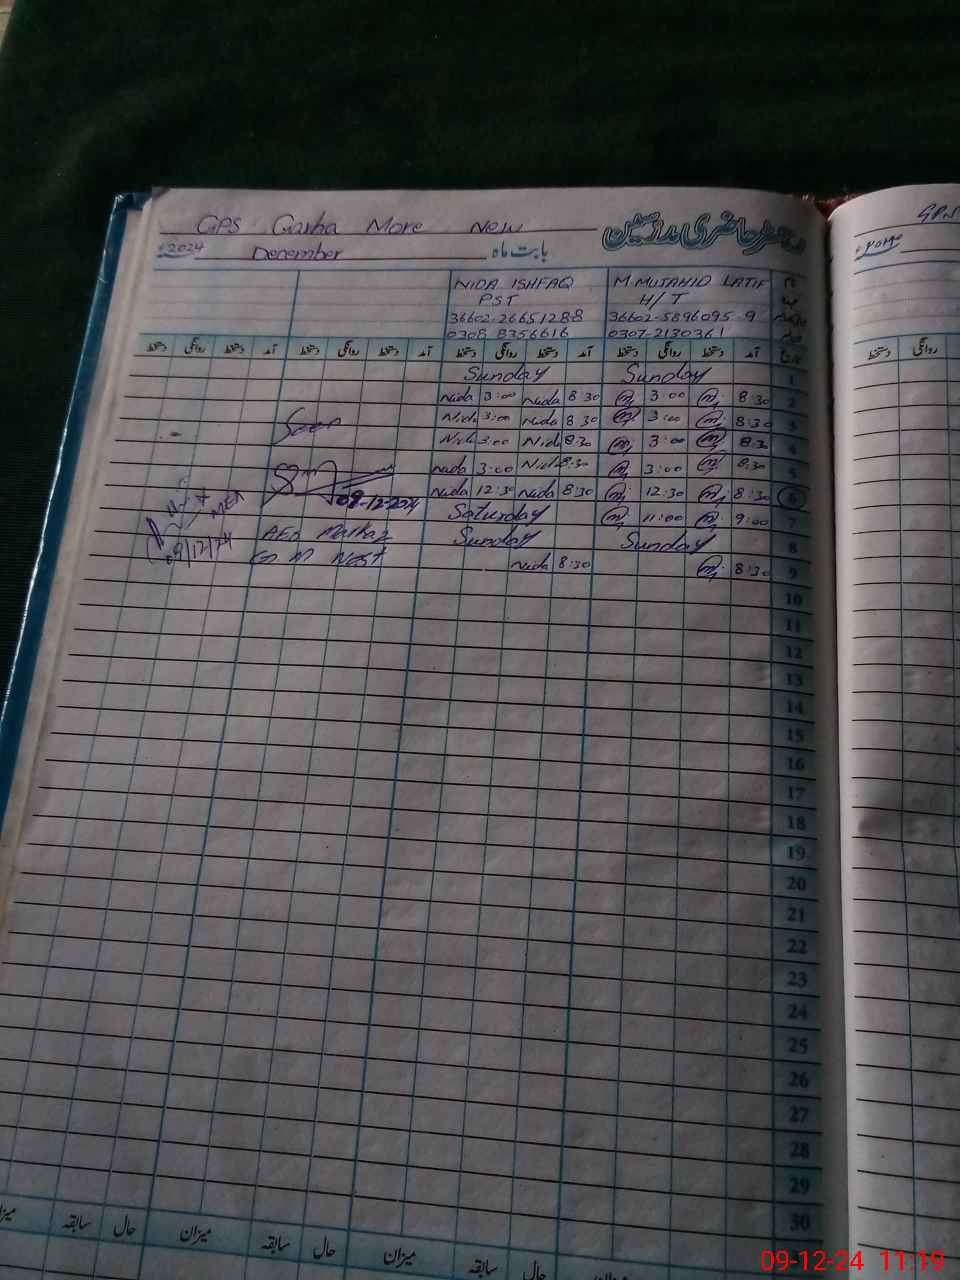 GPS Garha More New
دفتر حاضری ملازمین
2024 December بابت ماہ
NIDA ISHFAQ M. MUJAHID LATIF
PST H/T
36602-2665128-8 36602-5896095-9
0308 8356616 0307-2130361
دستخط روانگی دستخط آمد دستخط روانگی دستخط آمد دستخط روانگی دستخط آمد دستخط روانگی دستخط آمد
Sunday Sunday 1
Nida 3:00 Nida 8:30 3:00 8:30 2
Nida 3:00 Nida 8:30 3:00 8:30 3
Nida 3:00 Nida 8:30 3:00 8:30 4
Nida 3:00 Nida 8:30 3:00 8:30 5
Nida 12:30 Nida 8:30 12:30 8:30 6
Saturday 11:00 9:00 7
Sunday Sunday 8
Nida 8:30 8:30 9
Seen
09-12-2024
AEO Markaz
MEA
09/12/24
10
11
12
13
14
15
16
17
18
19
20
21
22
23
24
25
26
27
28
29
30
میزان سابقہ حال میزان سابقہ حال میزان سابقہ حال میزان
دستخط روانگی
09-12-24 11:19